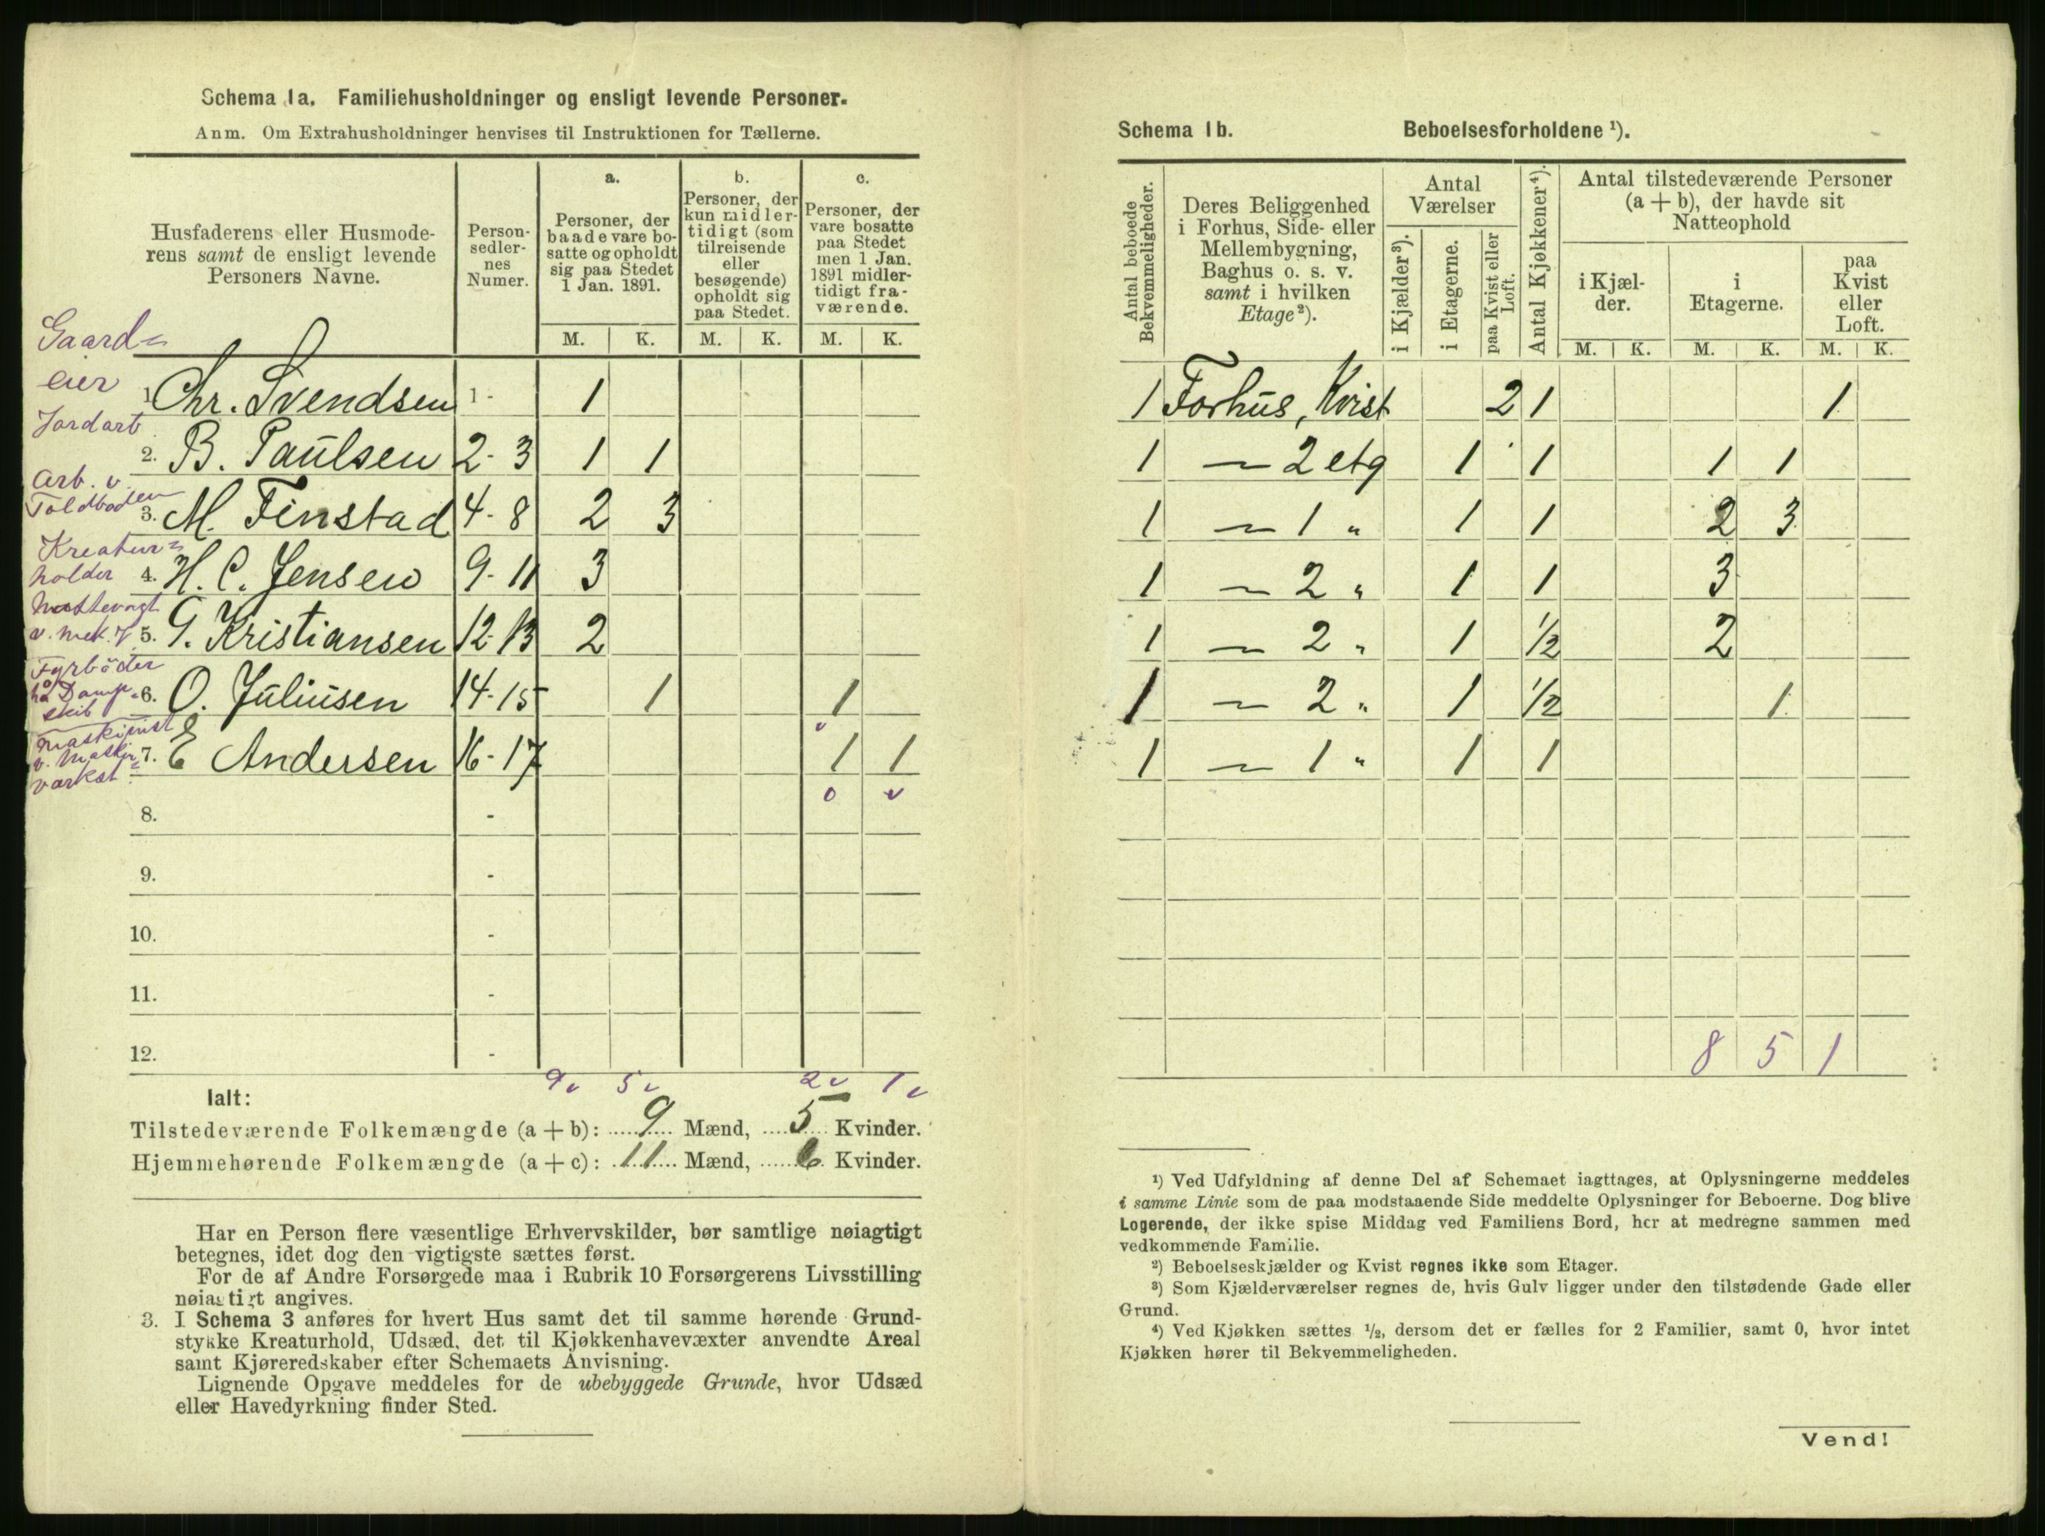 Schema 1a. Familiehusholdninger og ensligt levende Personer.
Anm. Om Extrahusholdninger henvises til Instruktionen for Tællerne.
Husfaderens eller Husmode-
rens samt de ensligt levende
Personers Navne.
Person-
sedler-
nes
Numer.
a.
Personer, der
baade vare bo-
satte og opholdt
sig paa Stedet
1 Jan. 1891.
b.
Personer, der
kun midler-
tidigt (som
tilreisende
eller
besøgende)
opholdt sig
paa Stedet.
c.
Personer, der
vare bosatte
paa Stedet
men 1 Jan.
1891 midler-
tidigt fra-
værende.
M. K. M. K. M. K.
Gaard=
eier
1 Chr. Svendsen 1 - 1
Jordarb.
2. B. Paulsen 2 - 3 1 1
Arb. v.
Toldboden
3. M. Finstad 4 - 8 2 3
Kreatur=
holder 4. H. C. Jensen 9 - 11 3
Nattevagt
v. mek. 5. G. Kristiansen 12 - 13 2
Fyrbøder
på Damp-
skib 6. O. Juliusen 14 - 15 1 1
Maskinist
v. Maskin=
værkst. 7. E Andersen 16 - 17 1 1
8. -
9. -
10. -
11. -
12. -
9 5 2 1
Ialt:
Tilstedeværende Folkemængde (a + b): 9 Mænd, 5 Kvinder.
Hjemmehørende Folkemængde (a + c): 11 Mænd, 6 Kvinder.
Har en Person flere væsentlige Erhvervskilder, bør samtlige nøiagtigt
betegnes, idet dog den vigtigste sættes først.
For de af Andre Forsørgede maa i Rubrik 10 Forsørgerens Livsstilling
nøiagtigt angives.
3. I Schema 3 anføres for hvert Hus samt det til samme hørende Grund-
stykke Kreaturhold, Udsæd, det til Kjøkkenhavevæxter anvendte Areal
samt Kjøreredskaber efter Schemaets Anvisning.
Lignende Opgave meddeles for de ubebyggede Grunde, hvor Udsæd
eller Havedyrkning finder Sted.
Schema 1b. Beboelsesforholdene ¹).
Antal beboede
Bekvemmeligheder.
Deres Beliggenhed
i Forhus, Side- eller
Mellembygning,
Baghus o. s. v.
samt i hvilken
Etage²).
Antal
Værelser
i Kjælder³).
i Etagerne.
paa Kvist eller
Loft.
Antal Kjøkkener⁴).
Antal tilstedeværende Personer
(a + b), der havde sit
Natteophold
i Kjæl-
der.
i
Etagerne.
paa
Kvist
eller
Loft.
M. K. M. K. M. K.
1 Forhus, Kvist 2 1 1
1 — 2 etg 1 1 1 1
1 — 1 " 1 1 2 3
1 — 2 " 1 1 3
1 — 2 " 1 1/2 2
1 — 2 " 1 1/2 1
1 — 1 " 1 1
8 5 1
¹) Ved Udfyldning af denne Del af Schemaet iagttages, at Oplysningerne meddeles
i samme Linie som de paa modstaaende Side meddelte Oplysninger for Beboerne. Dog blive
Logerende, der ikke spise Middag ved Familiens Bord, her at medregne sammen med
vedkommende Familie.
²) Beboelseskjælder og Kvist regnes ikke som Etager.
³) Som Kjælderværelser regnes de, hvis Gulv ligger under den tilstødende Gade eller
Grund.
⁴) Ved Kjøkken sættes ½, dersom det er fælles for 2 Familier, samt 0, hvor intet
Kjøkken hører til Bekvemmeligheden.
Vend!